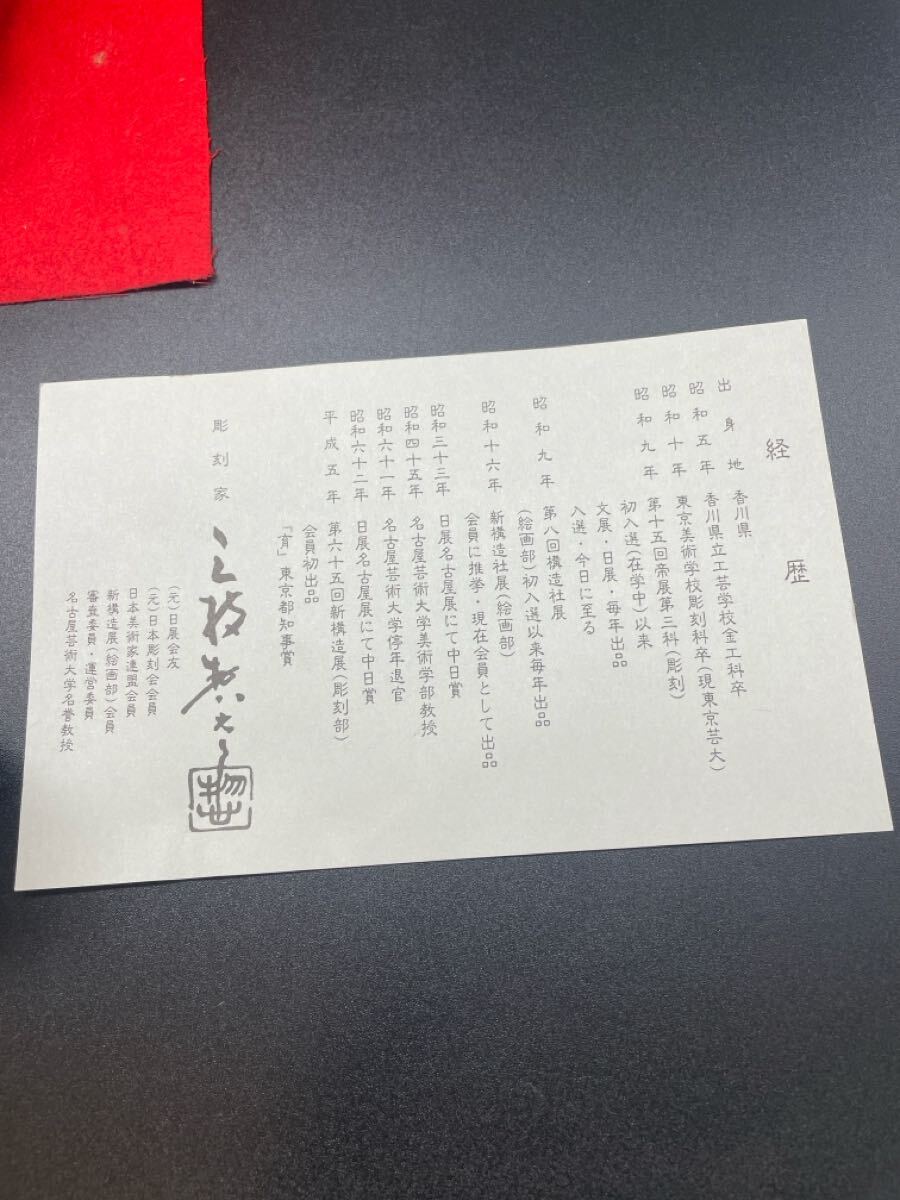 経歴
出身地 香川県
昭和五年 香川県立工芸学校金工科卒
昭和十年 東京美術学校彫刻科卒(現東京芸大)
昭和九年 第十五回帝展第三科(彫刻)
初入選(在学中)以来
文展・日展・毎年出品
入選・今日に至る
昭和九年 第八回構造社展
(絵画部)初入選以来毎年出品
昭和十六年 新構造社展(絵画部)
会員に推挙・現在会員として出品
昭和三十三年 日展名古屋展にて中日賞
昭和四十五年 名古屋芸術大学美術学部教授
昭和六十一年 名古屋芸術大学停年退官
昭和六十二年 日展名古屋展にて中日賞
平成五年 第六十五回新構造展(彫刻部)
会員初出品
「育」東京都知事賞
彫刻家 三枝惣太郎
(元)日展会友
(元)日本彫刻会会員
日本美術家連盟会員
新構造展(絵画部)会員
審査委員・運営委員
名古屋芸術大学名誉教授